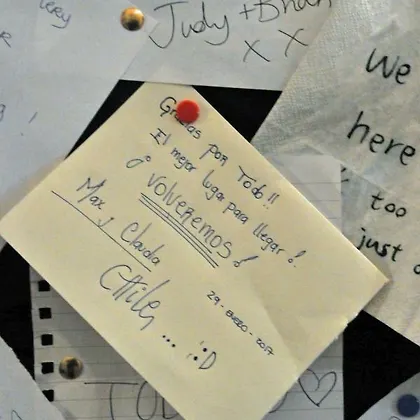 Judy + Brian
X X
We
here
too
just
Gracias por Todo!!
El mejor lugar para llegar!
¡VOLVEREMOS!
Max y Claudia
CHILE, .... ;:D
29-ENERO-2017
TOD